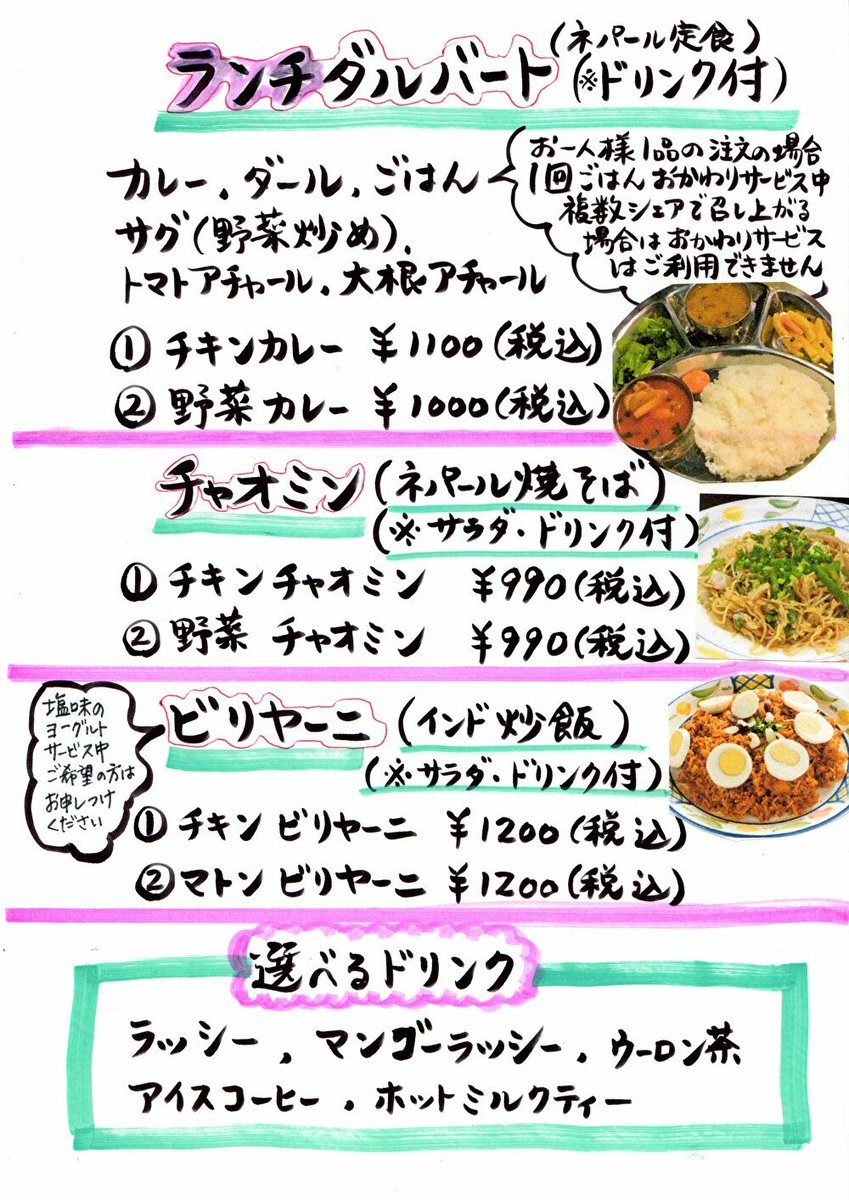 ランチダルバート(ネパール定食)
(※ドリンク付)
カレー、ダール、ごはん
サグ(野菜炒め)、
トマトアチャール、大根アチャール
お一人様1品の注文の場合
1回ごはんおかわりサービス中
複数シェアで召し上がる
場合はおかわりサービス
はご利用できません
① チキンカレー ¥1100(税込)
② 野菜カレー ¥1000(税込)
チャオミン(ネパール焼そば)
(※サラダ・ドリンク付)
① チキンチャオミン ¥990(税込)
② 野菜 チャオミン ¥990(税込)
塩味の
ヨーグルト
サービス中
ご希望の方は
お申しつけ
ください
ビリヤーニ(インド炒飯)
(※サラダ・ドリンク付)
① チキン ビリヤーニ ¥1200(税込)
② マトン ビリヤーニ ¥1200(税込)
選べるドリンク
ラッシー、マンゴーラッシー、ウーロン茶
アイスコーヒー、ホットミルクティー